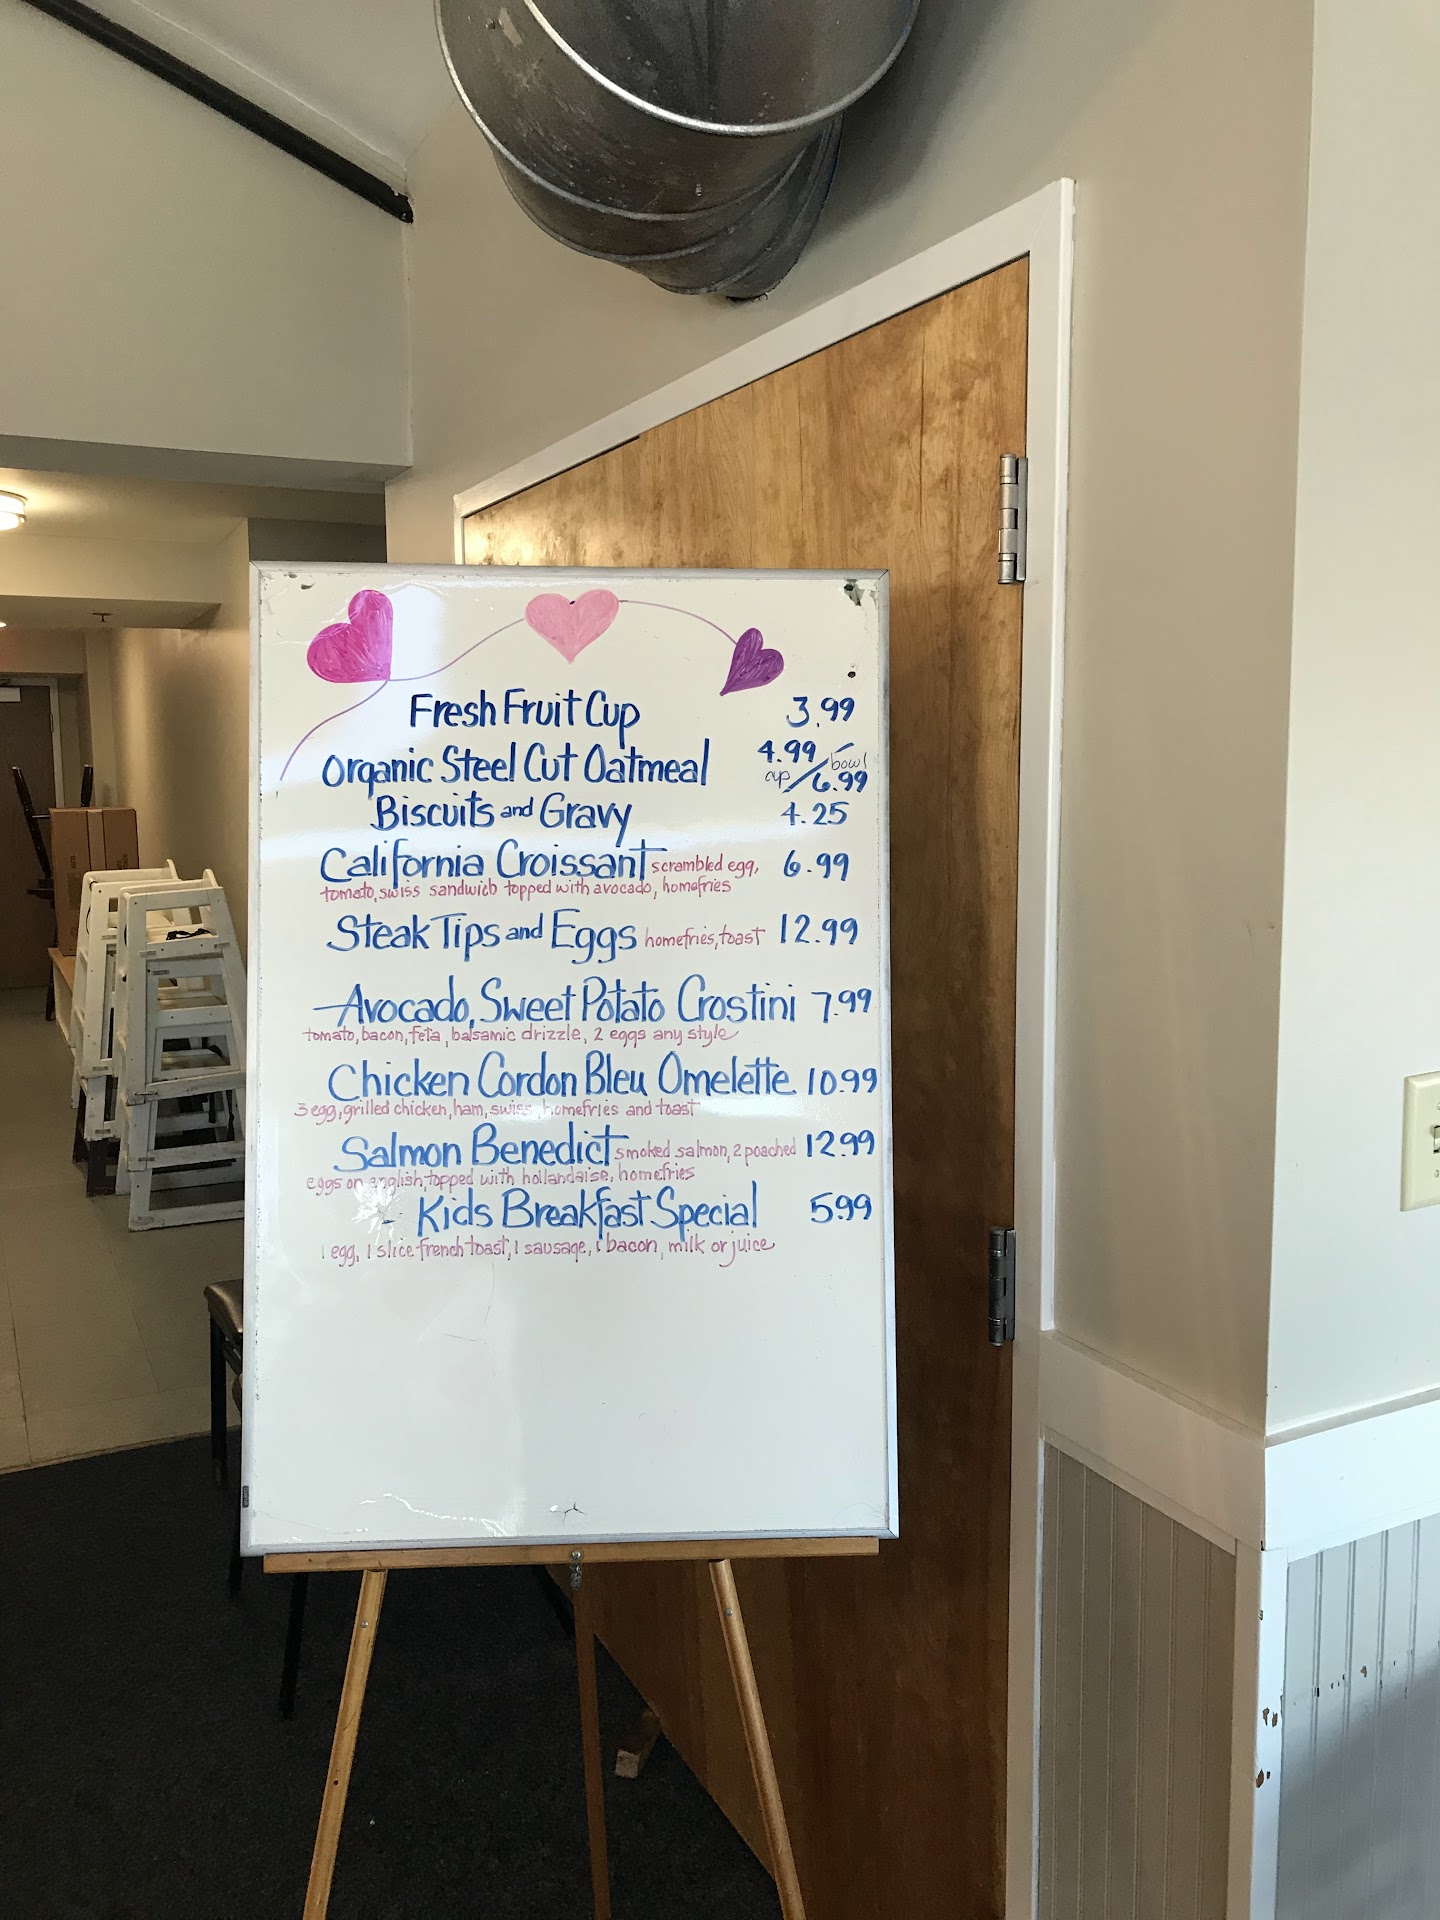 Fresh Fruit Cup 3.99
Organic Steel Cut Oatmeal 4.99 cup / bowl 6.99
Biscuits and Gravy 4.25
California Croissant scrambled egg, 6.99
tomato, swiss sandwich topped with avocado, homefries
Steak Tips and Eggs homefries, toast 12.99
Avocado, Sweet Potato Crostini 7.99
tomato, bacon, feta, balsamic drizzle, 2 eggs any style
Chicken Cordon Bleu Omelette 10.99
3 egg, grilled chicken, ham, swiss, homefries and toast
Salmon Benedict smoked salmon, 2 poached 12.99
eggs on english, topped with hollandaise, homefries
Kids Breakfast Special 5.99
1 egg, 1 slice french toast, 1 sausage, 1 bacon, milk or juice